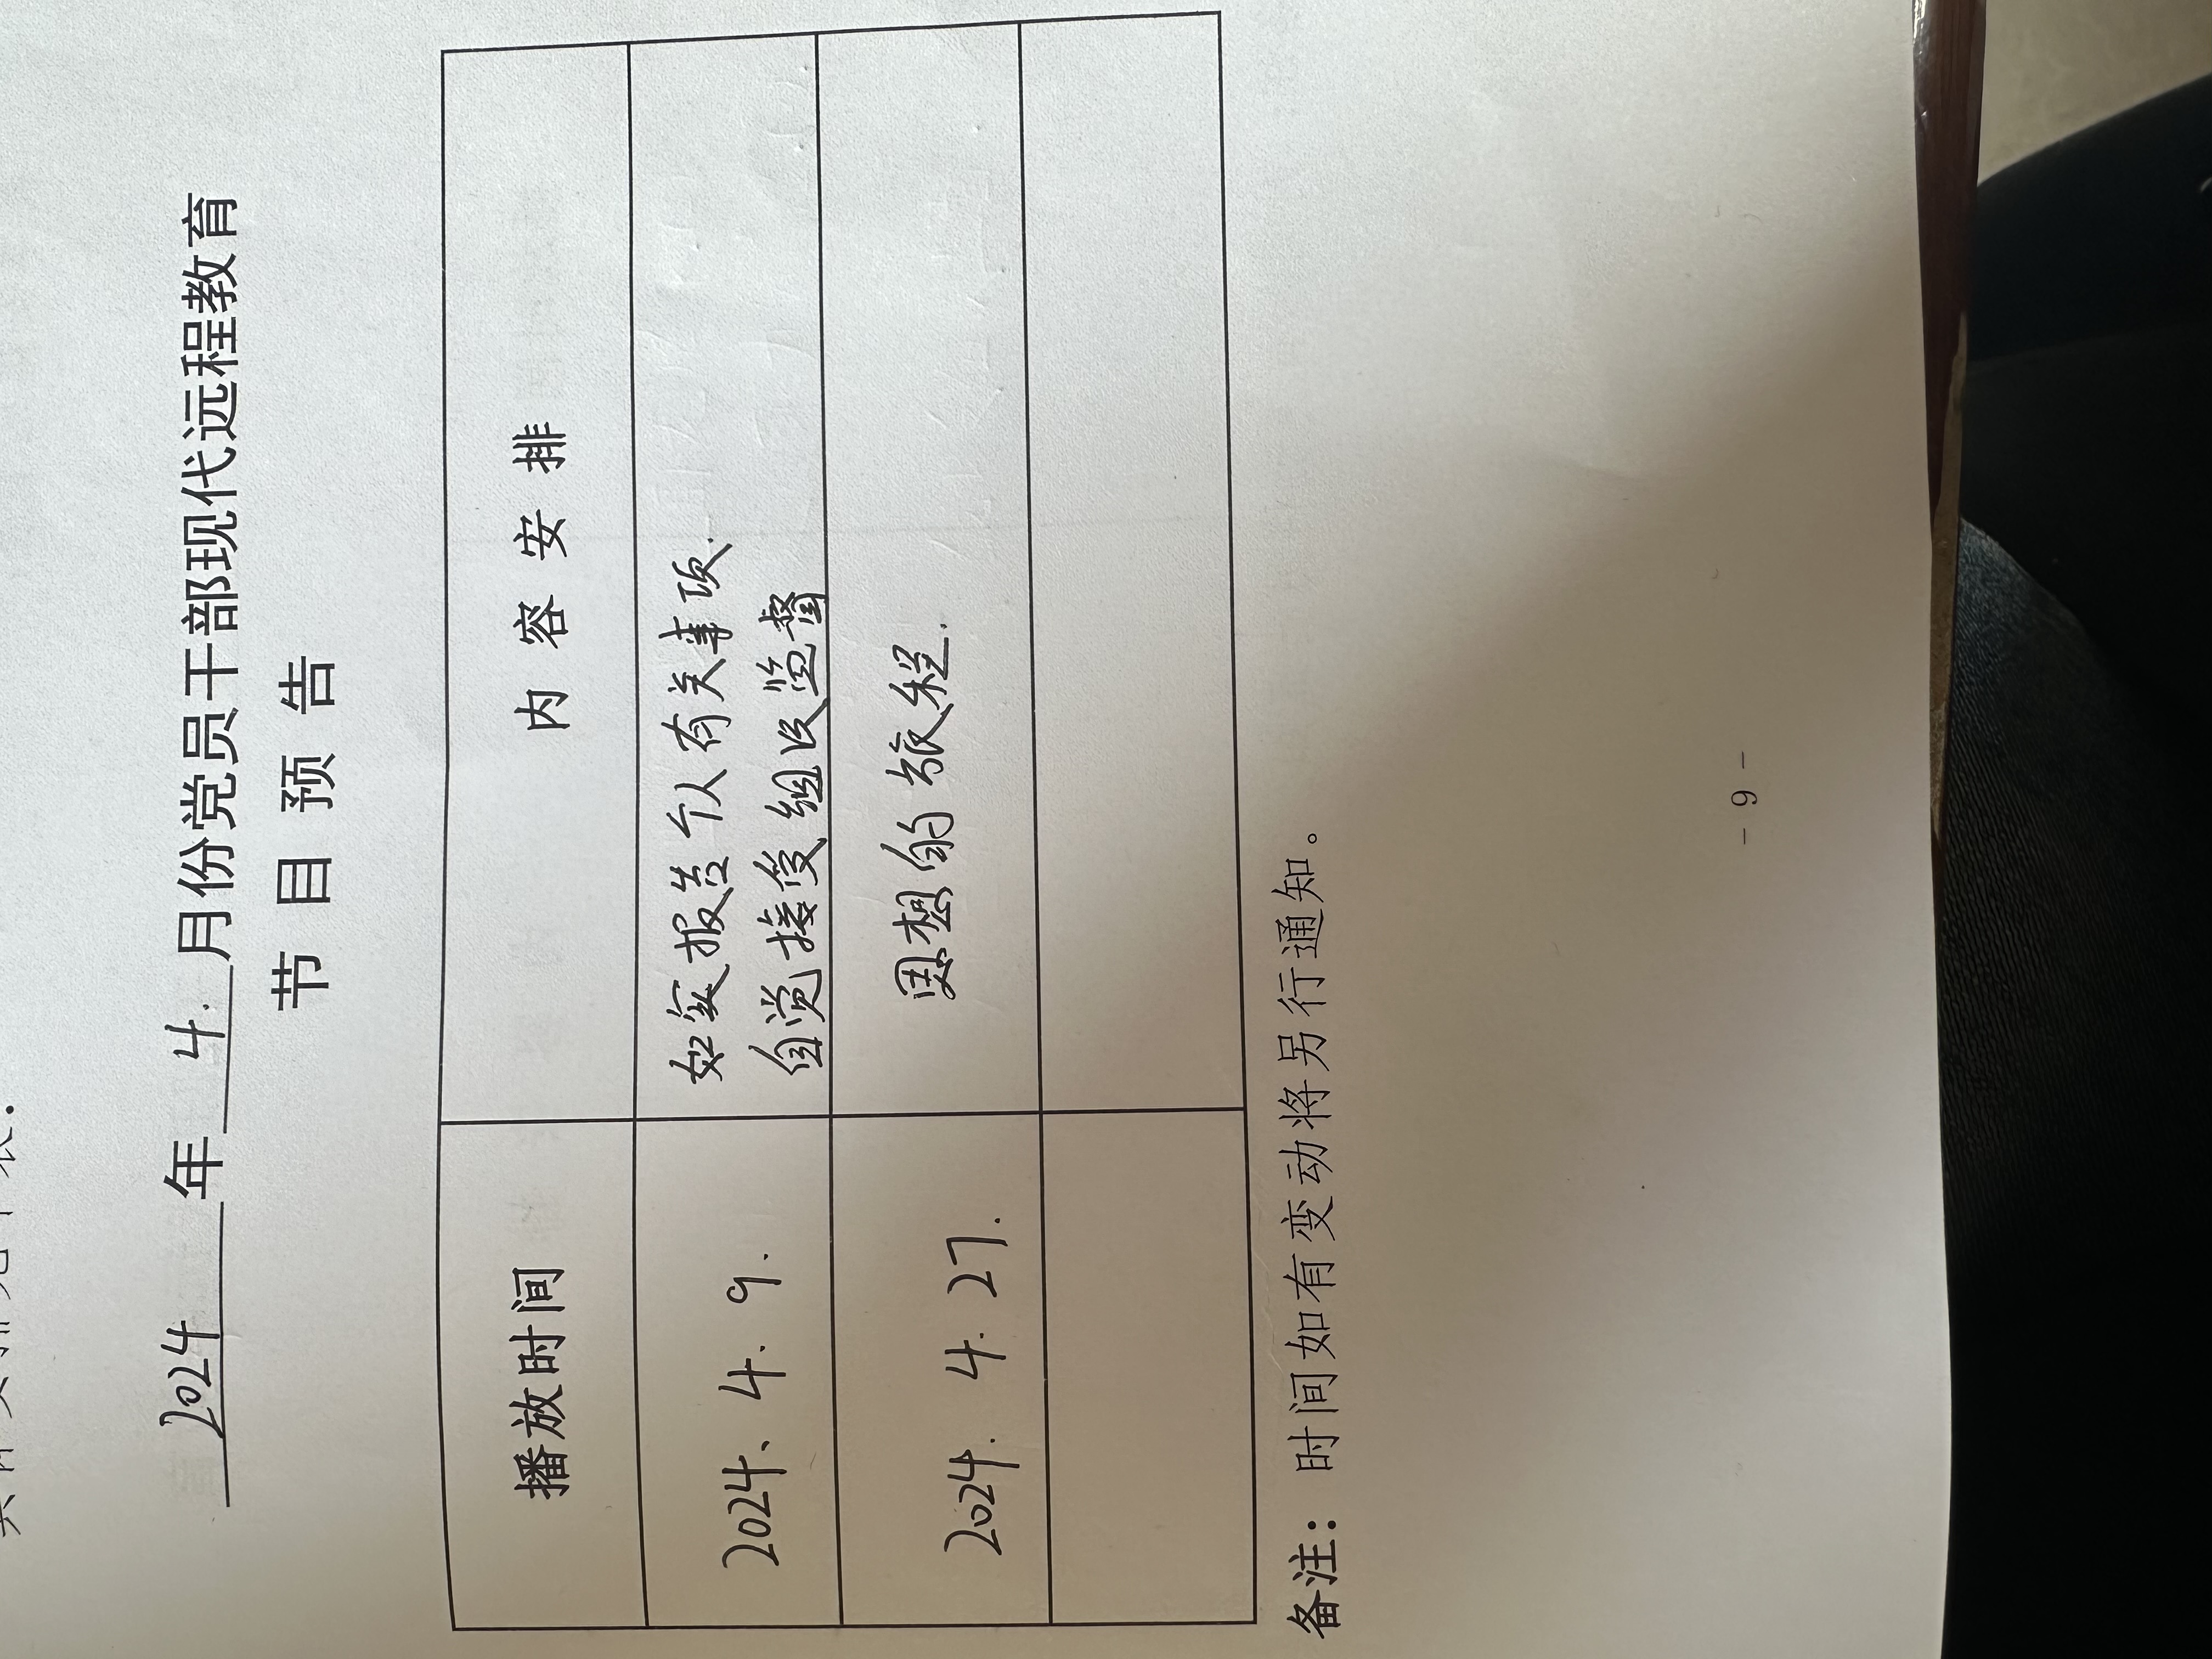 2024年4.月份党员干部现代远程教育
节目预告
播放时间 内容安排
2024、4、9. 如实报告个人有关事项.
自觉接受组织监督
2024. 4. 27. 思想的旅程.
备注：时间如有变动将另行通知。
- 9 -